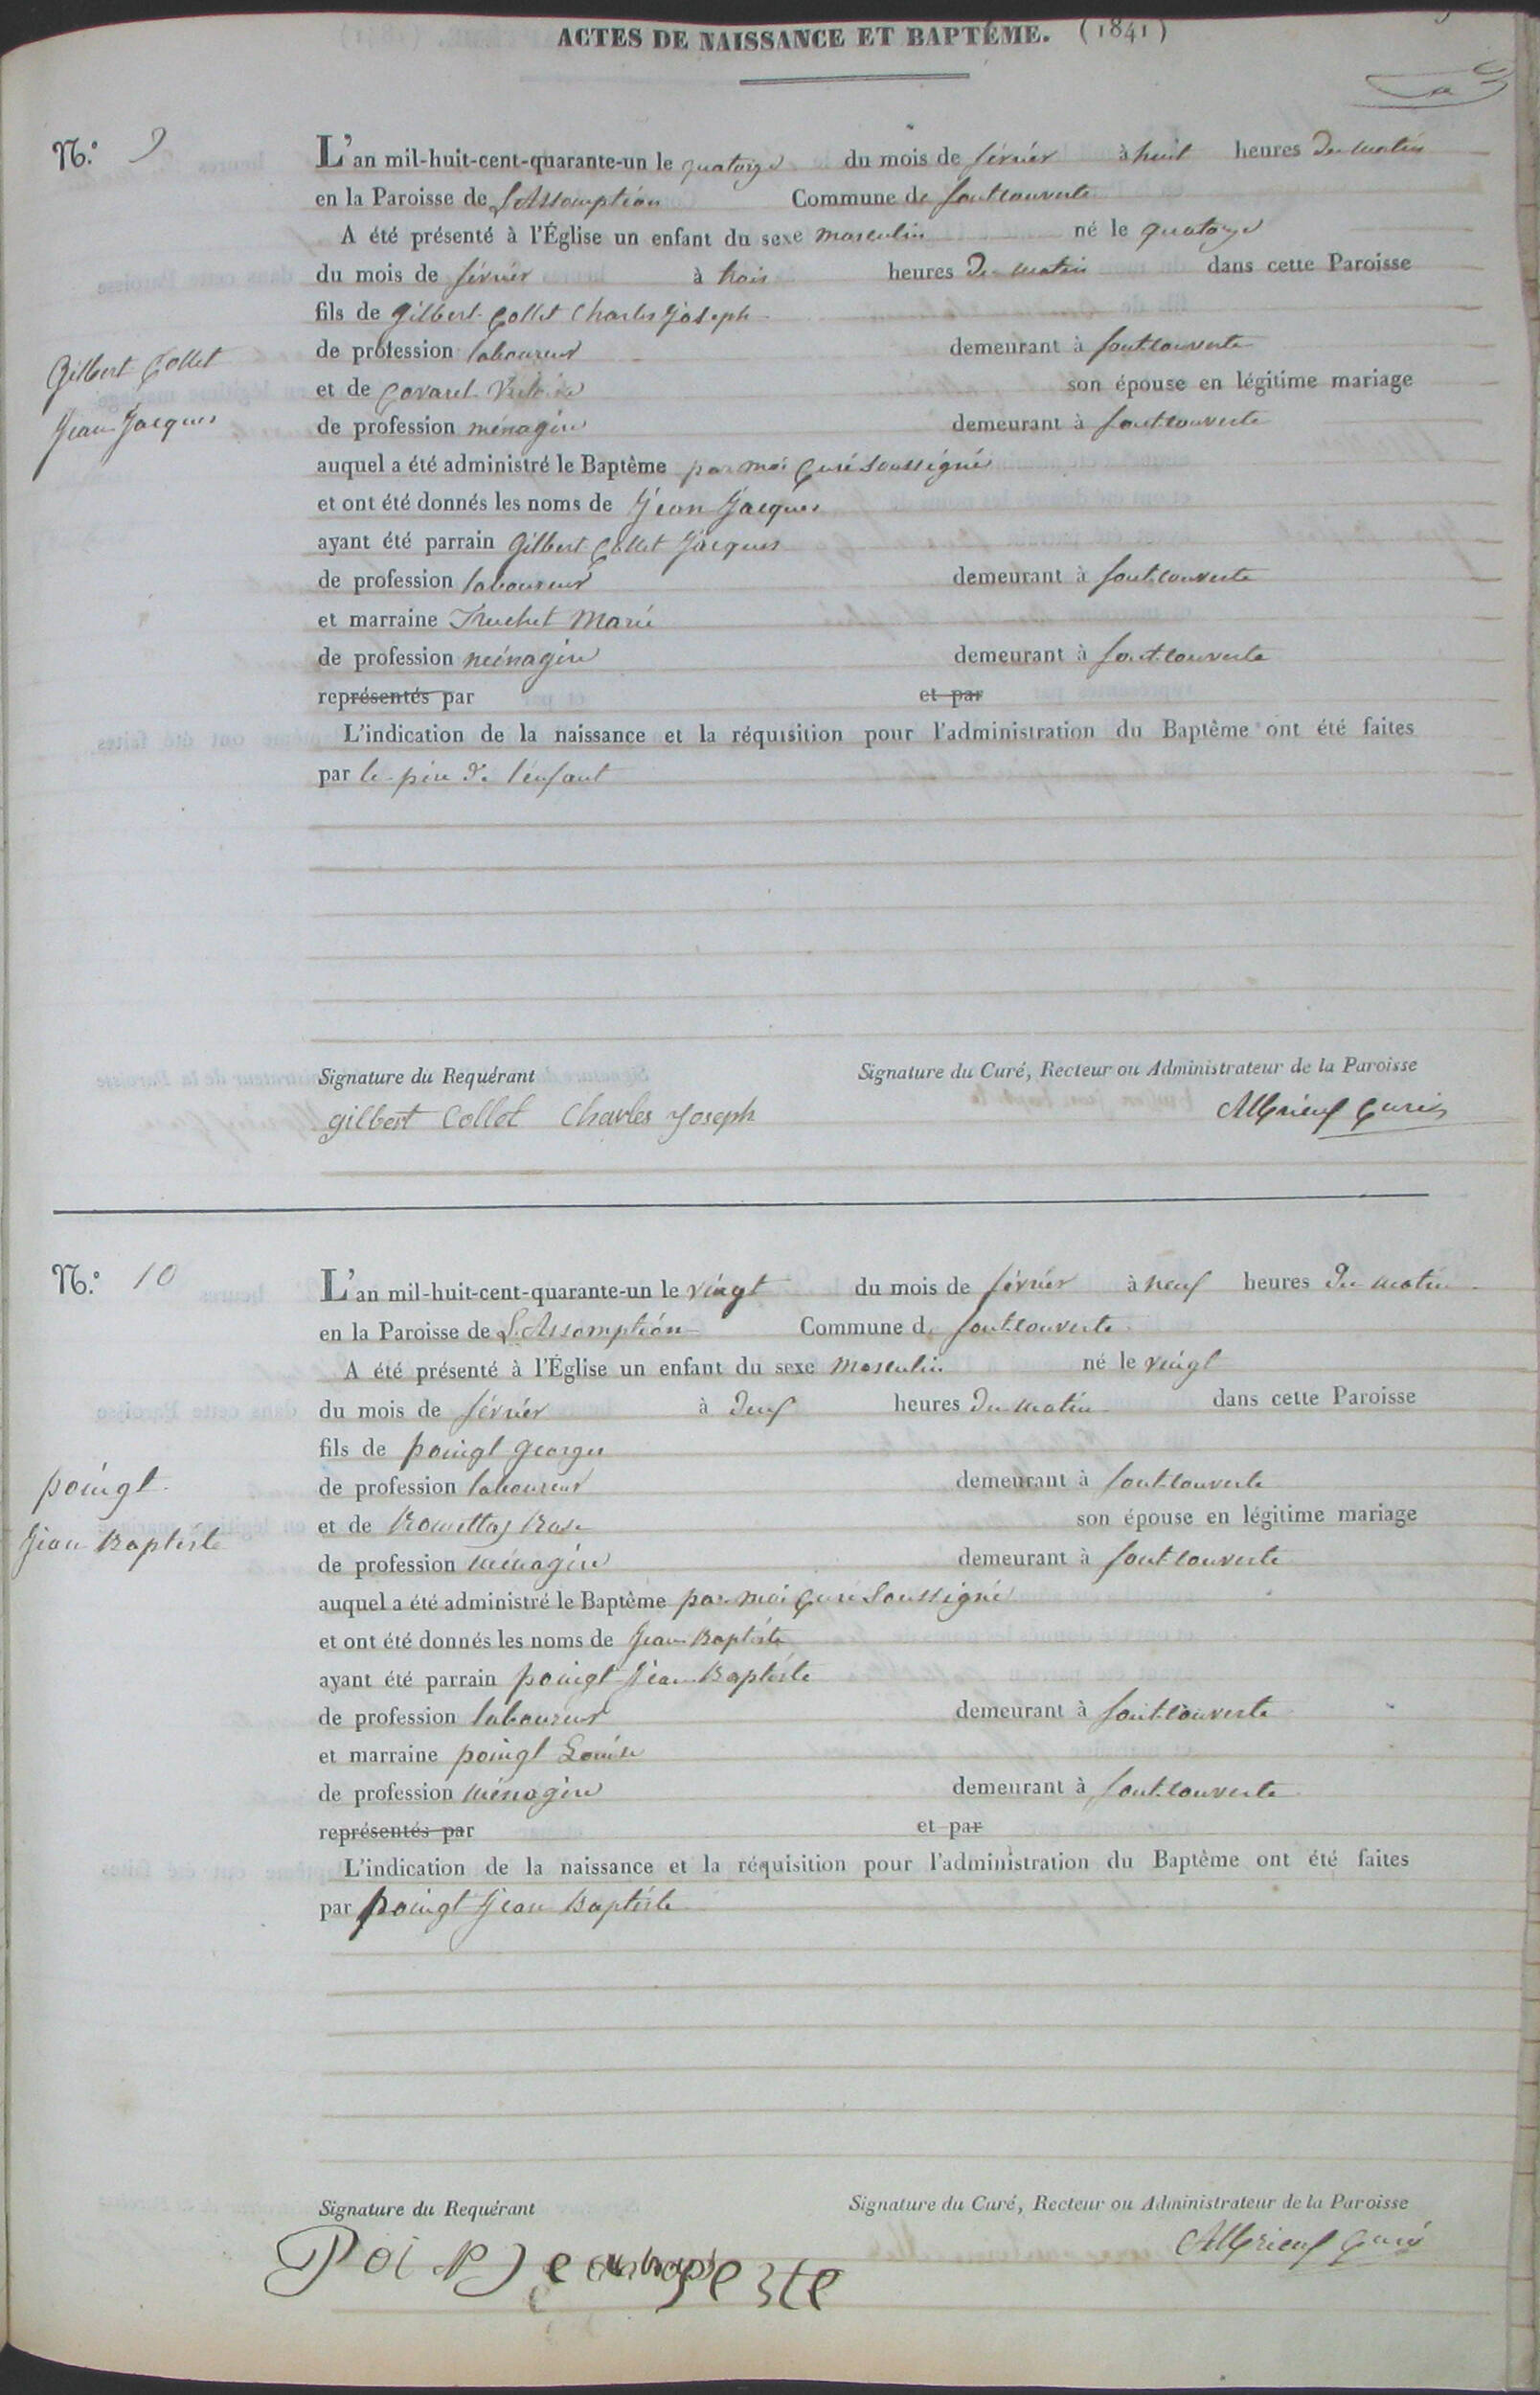 ACTES DE NAISSANCE ET BAPTÊME. (1841)
N.º 9
L'an mil-huit-cent-quarante-un le quatorze du mois de février à huit heures du matin
en la Paroisse de L'Assomption Commune de fontcouverte
A été présenté à l'Église un enfant du sexe masculin né le quatorze
du mois de février à trois heures du matin dans cette Paroisse
fils de gilbert Collet Charles Joseph
Gilbert Collet
Jean Jacques
de profession laboureur demeurant à fontcouverte
et de Covarel son épouse en légitime mariage
de profession ménagère demeurant à fontcouverte
auquel a été administré le Baptême par moi Curé Soussigné
et ont été donnés les noms de Jean Jacques
ayant été parrain Gilbert Collet Jacques
de profession laboureur demeurant à fontcouverte
et marraine Truchet Marie
de profession ménagère demeurant à fontcouverte
représentés par et par
L'indication de la naissance et la réquisition pour l'administration du Baptême ont été faites
par le père de l'enfant
Signature du Requérant Signature du Curé, Recteur ou Administrateur de la Paroisse
gilbert Collet Charles Joseph Curé
N.º 10
L'an mil-huit-cent-quarante-un le vingt du mois de février à neuf heures du matin
en la Paroisse de L'Assomption Commune de fontcouverte
A été présenté à l'Église un enfant du sexe masculin né le vingt
du mois de février à deux heures du matin dans cette Paroisse
fils de poingt georges
poingt
Jean Baptiste
de profession laboureur demeurant à fontcouverte
et de Rose son épouse en légitime mariage
de profession ménagère demeurant à fontcouverte
auquel a été administré le Baptême par moi Curé Soussigné
et ont été donnés les noms de Jean Baptiste
ayant été parrain poingt Jean Baptiste
de profession laboureur demeurant à fontcouverte
et marraine poingt Louise
de profession ménagère demeurant à fontcouverte
représentés par et par
L'indication de la naissance et la réquisition pour l'administration du Baptême ont été faites
par poingt Jean Baptiste
Signature du Requérant Signature du Curé, Recteur ou Administrateur de la Paroisse
Curé